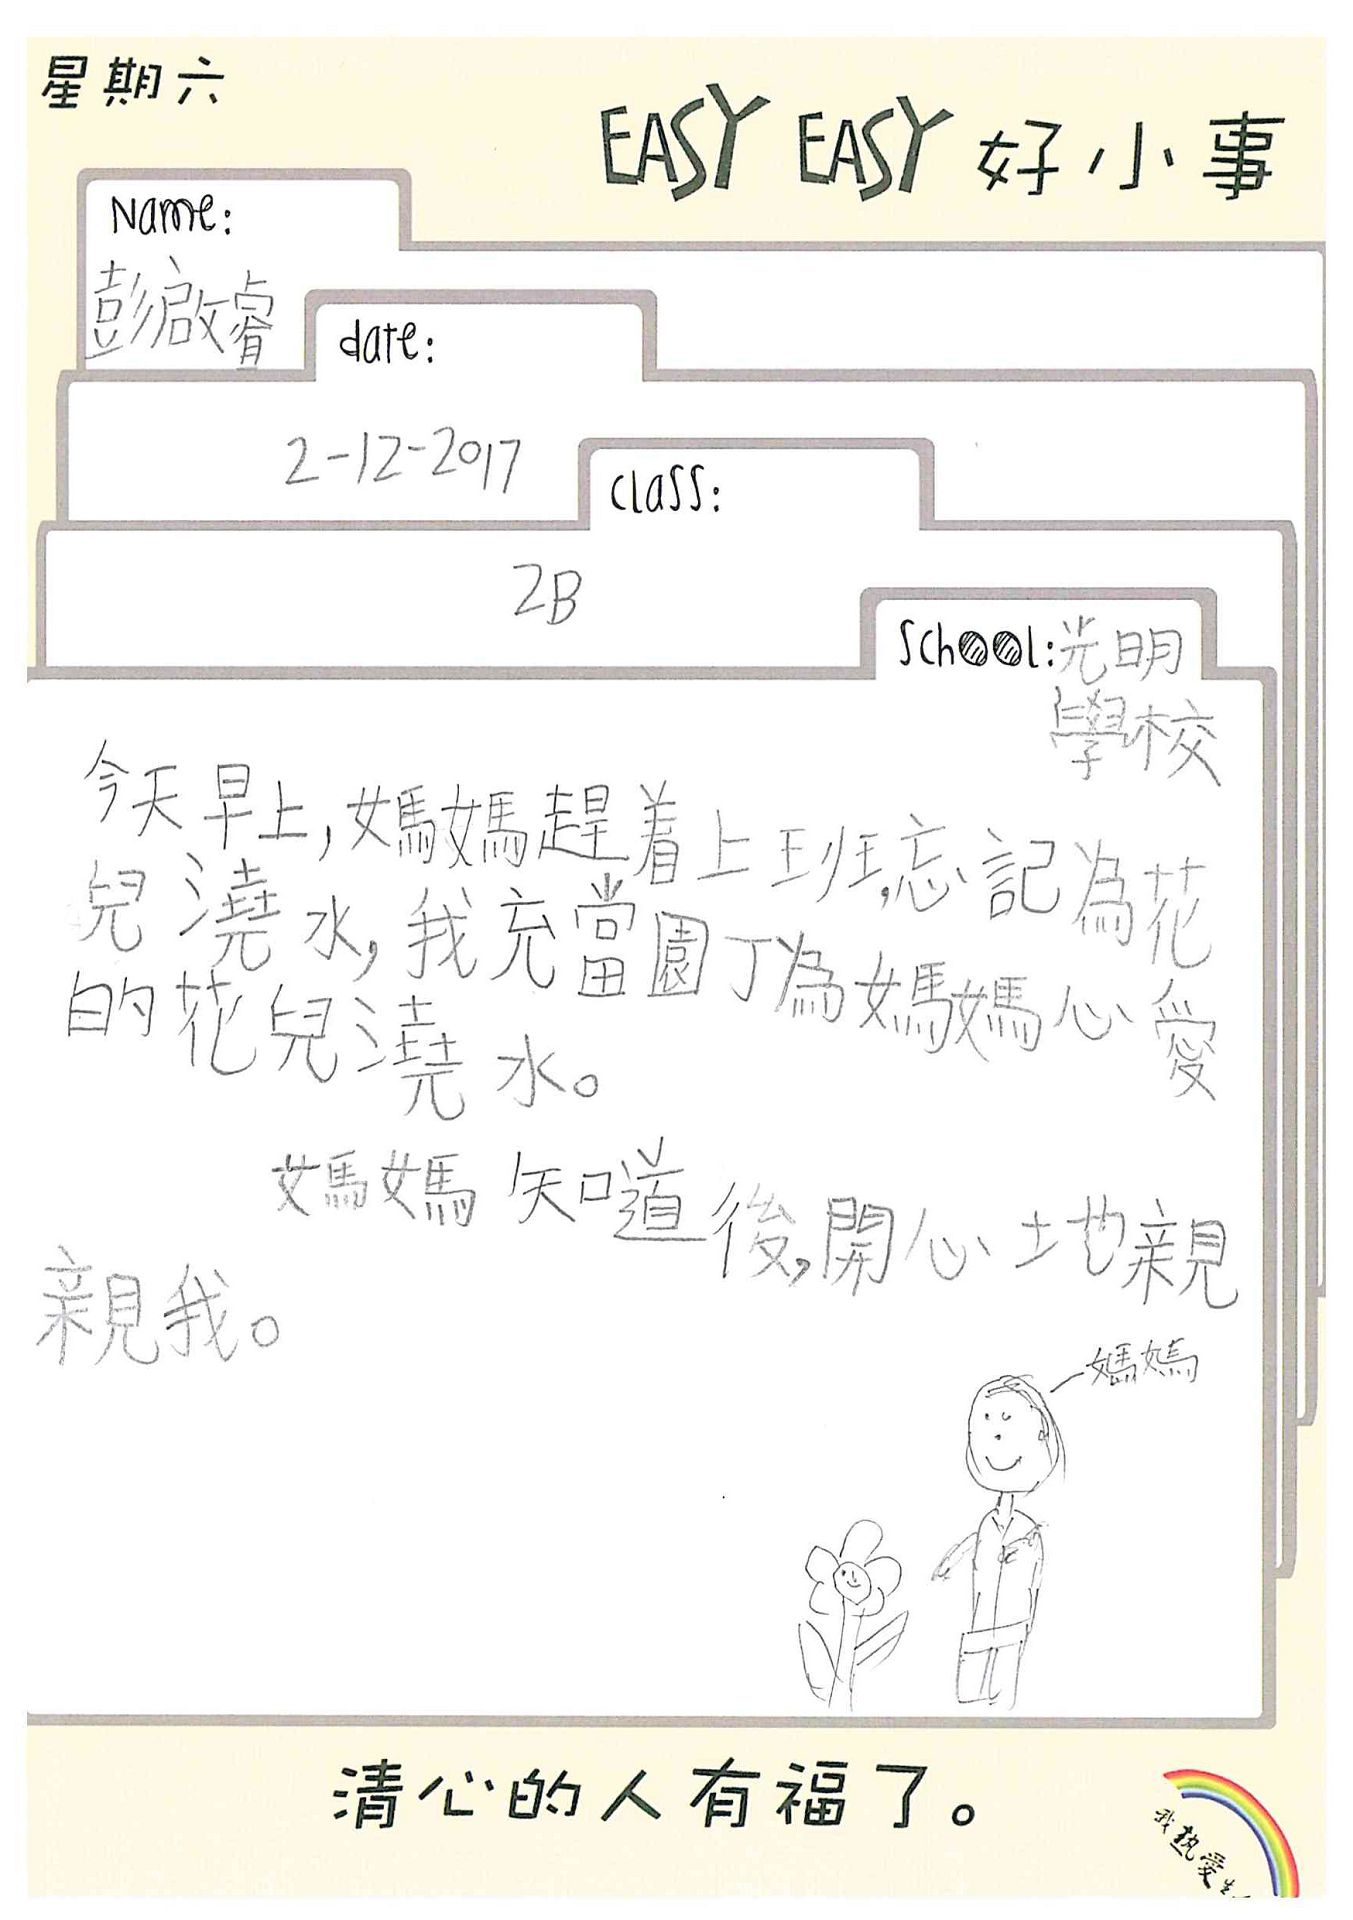 星期六
EASY EASY 好小事
Name:
彭啟睿
date:
2-12-2017
class:
2B
School:光明
學校
今天早上,媽媽趕着上班,忘記為花
兒澆水,我充當園丁為媽媽心愛
的花兒澆水。
媽媽知道後,開心地親
親我。
媽媽
清心的人有福了。
我熱愛生